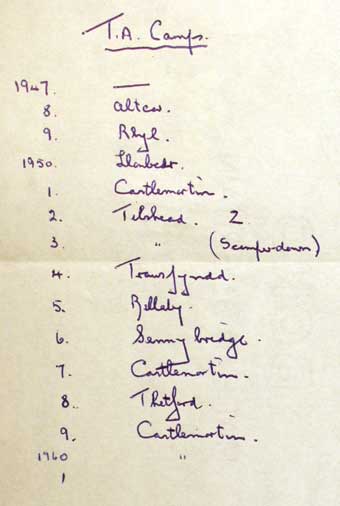 T.A. Camps.
1947. —
8. Altcar.
9. Rhyl.
1950. Llanbedr.
1. Castlemartin.
2. Tilshead. 2
3. " (Scimpsdown)
4. Trawsfynydd.
5. Bellerby.
6. Sennybridge.
7. Castlemartin.
8. Thetford.
9. Castlemartin.
1960 "
1